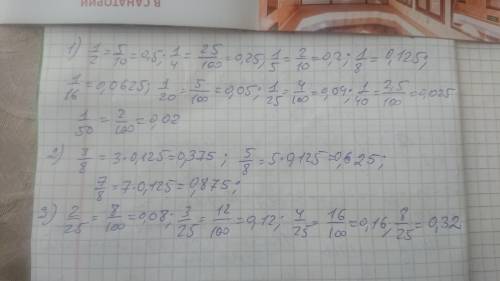 В САНАТОРИ
1) 1/2 = 5/10 = 0,5; 1/4 = 25/100 = 0,25; 1/5 = 2/10 = 0,2; 1/8 = 0,125;
1/16 = 0,0625; 1/20 = 5/100 = 0,05; 1/25 = 4/100 = 0,04; 1/40 = 2,5/100 = 0,025
1/50 = 2/100 = 0,02
2) 3/8 = 3·0,125 = 0,375; 5/8 = 5·0,125 = 0,625;
7/8 = 7·0,125 = 0,875;
3) 2/25 = 8/100 = 0,08; 3/25 = 12/100 = 0,12; 4/25 = 16/100 = 0,16; 8/25 = 0,32